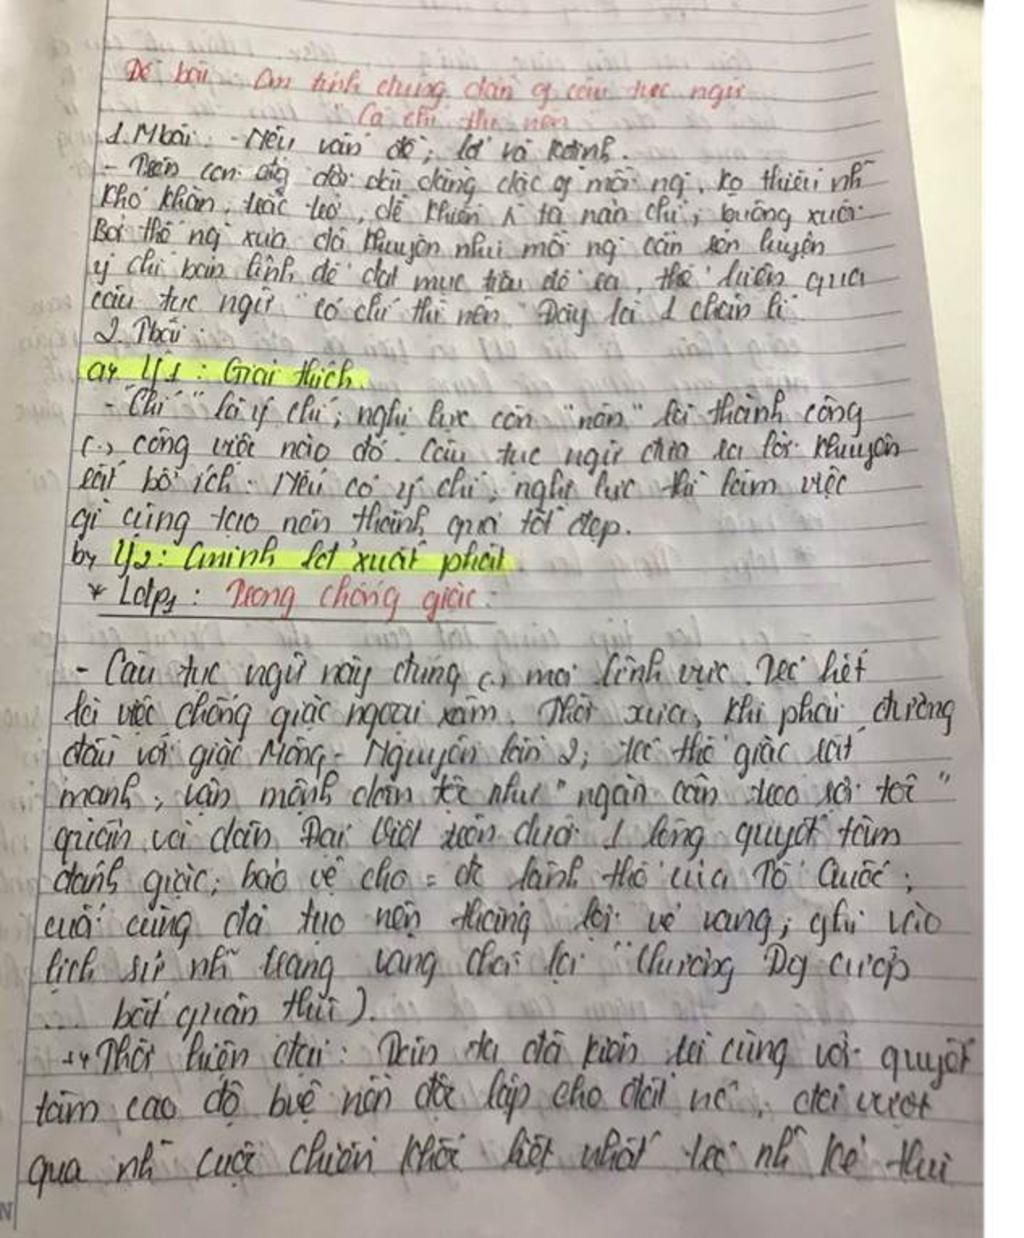 Đề bài: Cm tính đúng đắn of câu tục ngữ
Có chí thì nên
1. Mbài: - Nêu vấn đề;
- Trên con đg đời dù dàng dặc of mỗi ng, ko thiếu nh~
khó khăn, trắc trở, dễ khiến ta nản chí, buông xuôi.
Bởi thế ng xưa đã khuyên nhủi mỗi ng cần rèn luyện
ý chí bản lĩnh để đạt mục tiêu đề ra, thể hiện qua
câu tục ngữ "có chí thì nên". Đây là 1 chân lí.
2. Tbài:
a, Ý1: Giải thích.
- "Chí" là ý chí, nghị lực còn "nên" là thành công
(.) công việc nào đó. Câu tục ngữ đưa ra lời khuyên
rất bổ ích: Nếu có ý chí, nghị lực thì làm việc
gì cũng tạo nên thành quả tốt đẹp.
b, Ý2: Cminh xuất phát
* Lđ p1: Trong chống giặc:
- Câu tục ngữ này đúng (.) mọi lĩnh vực. Trc hết
là việc chống giặc ngoại xâm. Thời xưa, khi phải đương
đầu với giặc Mông - Nguyên lần 2, thế giặc rất
mạnh, vận mệnh dân tộc như "ngàn cân treo sợi tóc"
quân và dân Đại Việt trên dưới 1 lòng quyết tâm
đánh giặc, bảo vệ cho = đc lãnh thổ của Tổ Quốc,
cuối cùng đã tạo nên thắng lợi vẻ vang, ghi vào
lịch sử nh~ trang vang chói lọi (Chương Dg cướp
... bắt quân thù).
+, Thời hiện đại: Dân ta đã kiên trì cùng với quyết
tâm cao độ bvệ nền độc lập cho đất nc, đã vượt
qua nh~ cuộc chiến khốc liệt nhất trc nh~ kẻ thù